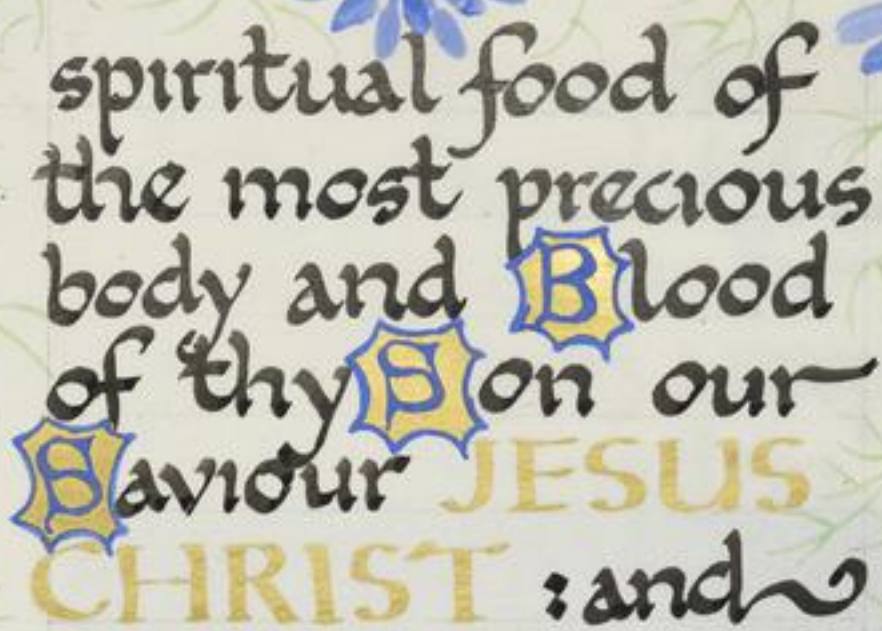 spiritual food of
the most precious
body and Blood
of thy Son our
Saviour JESUS
CHRIST : and